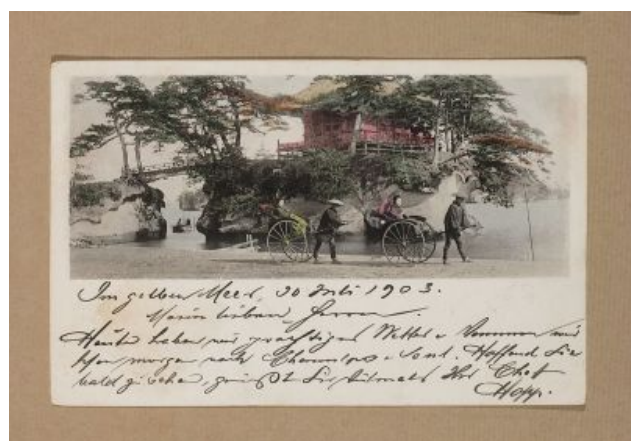 Im gelben Meer, 30 Juli 1903.
Meine lieben Herren.
Heute haben wir prachtiges Wetter & kommen wir
schon morgen nach Chemulpo & Soul. Hoffend Sie
bald zu sehen, grüßt Sie vielmals Ihr Chef
Hopp.